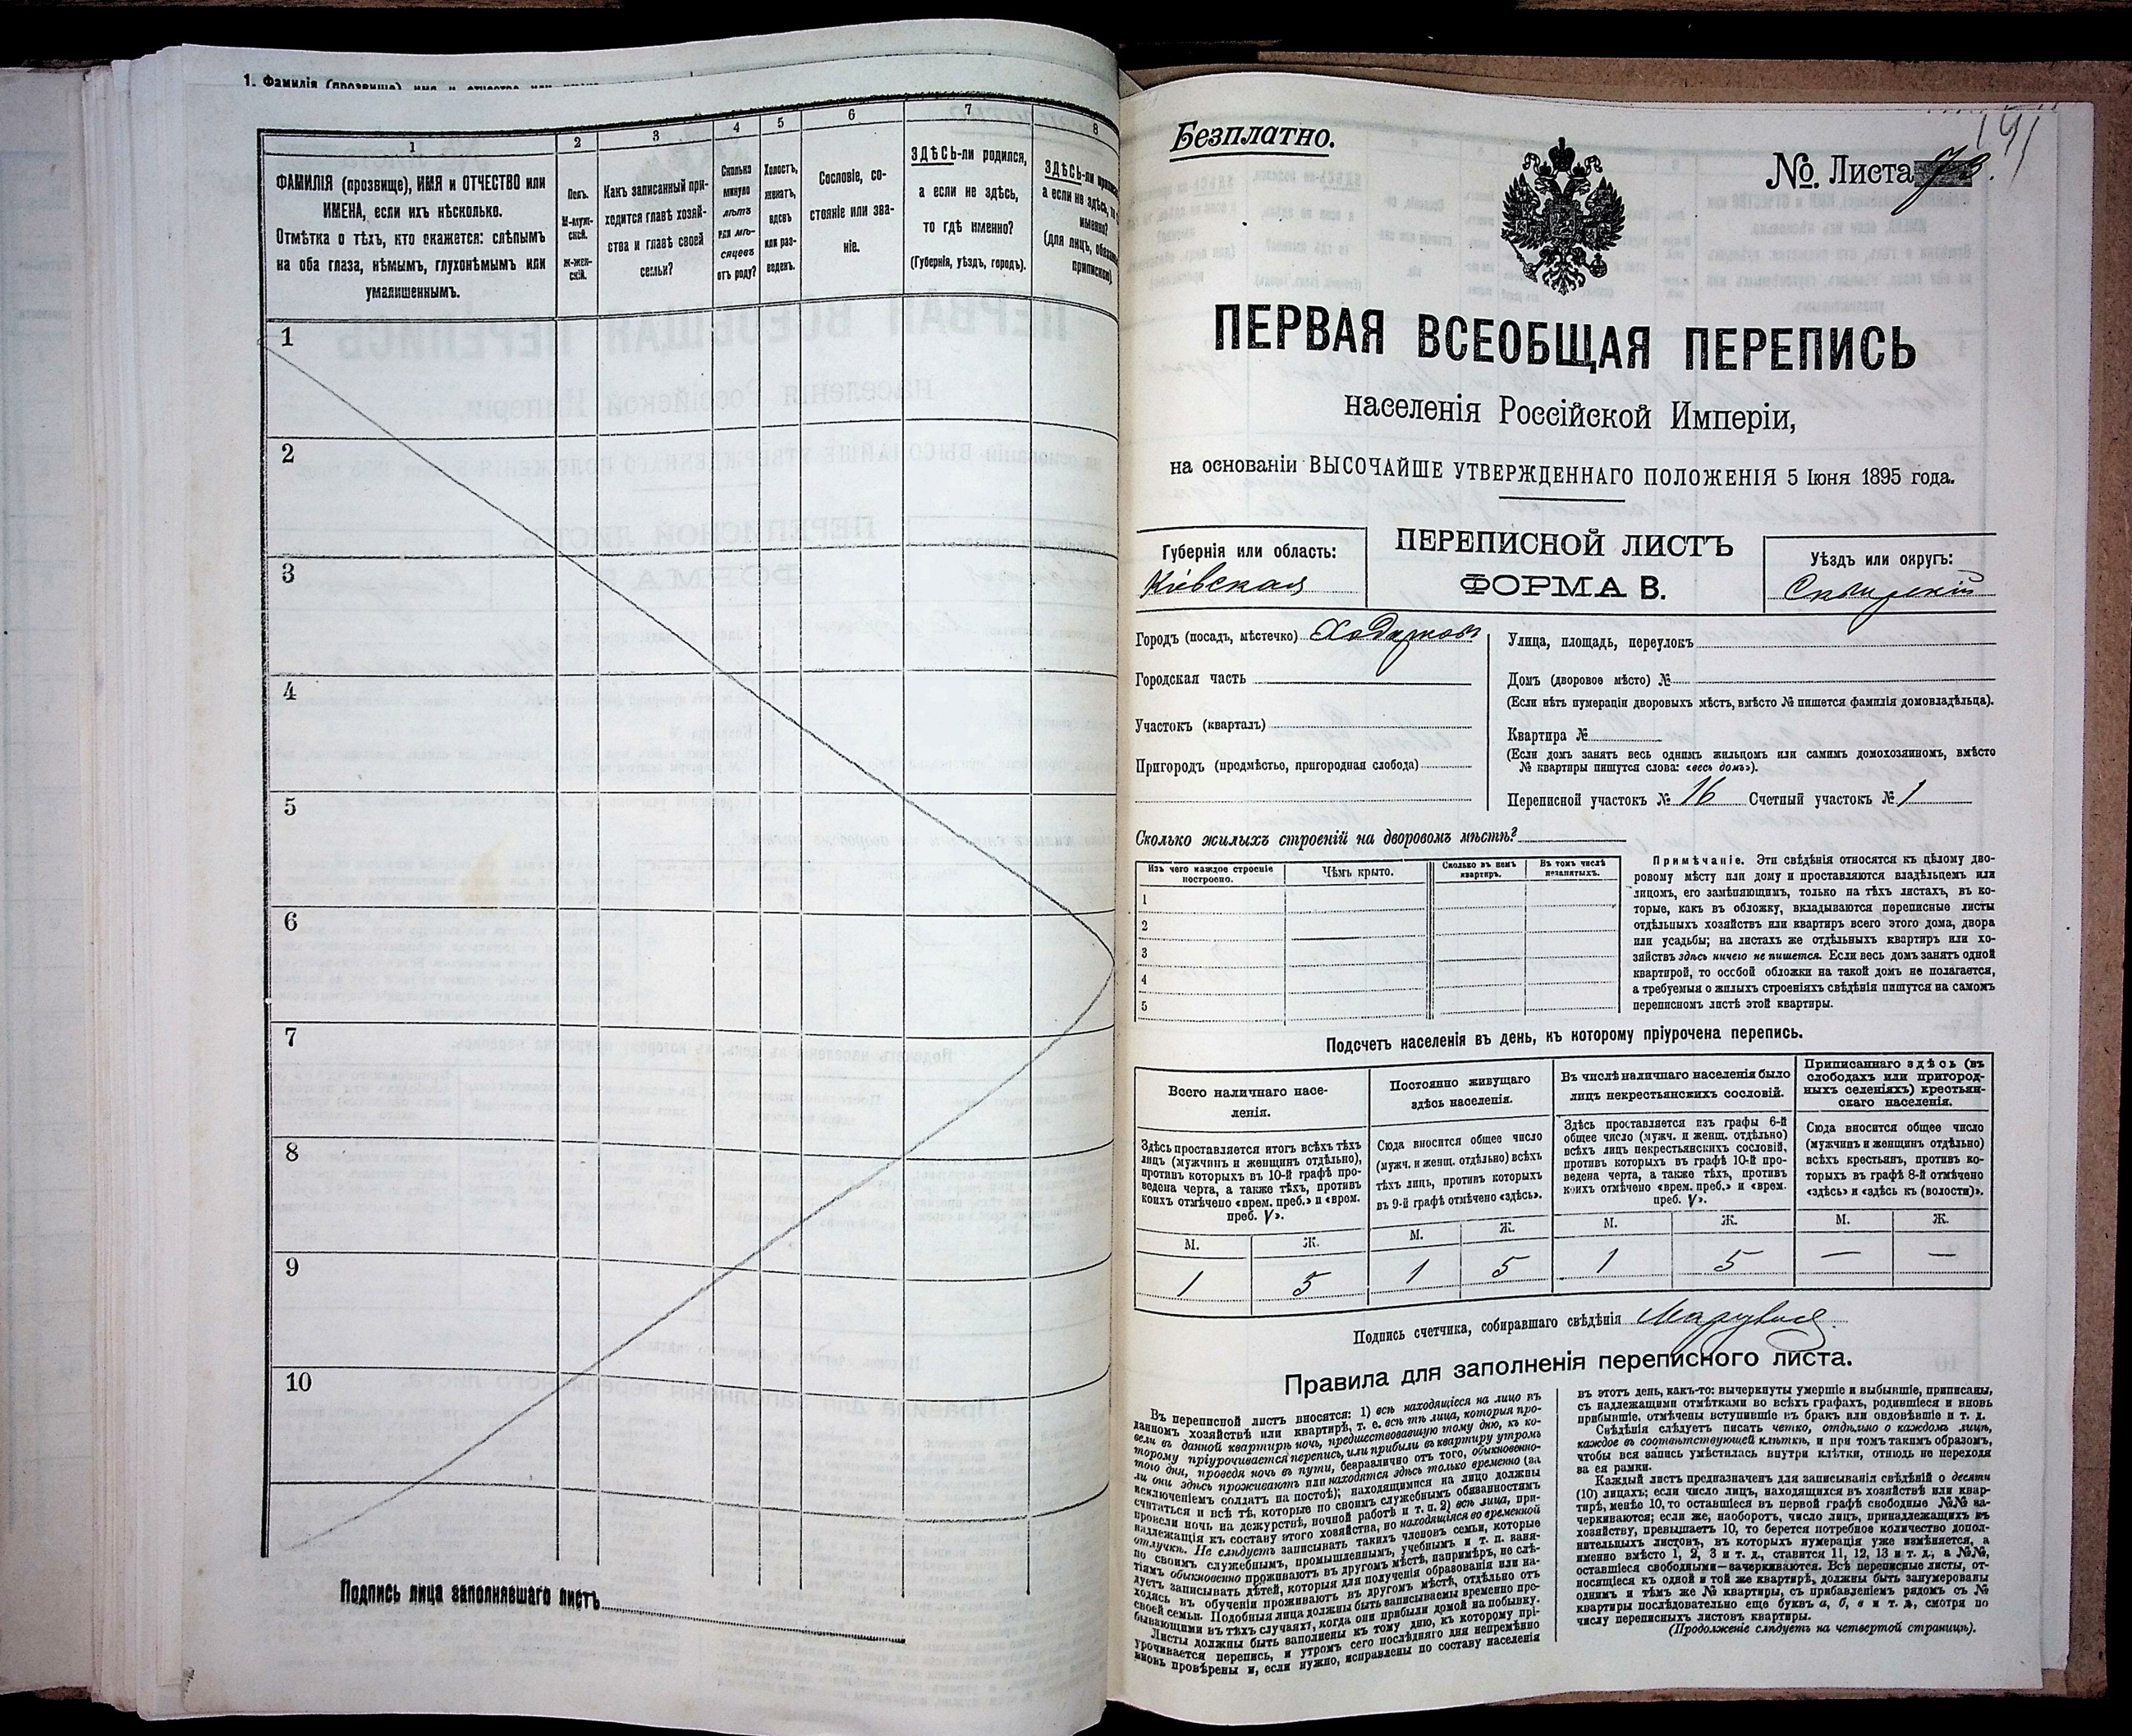 1. Фамилія (прозвище), имя и отчество или имена
1
ФАМИЛІЯ (прозвище), ИМЯ и ОТЧЕСТВО или
ИМЕНА, если ихъ нѣсколько.
Отмѣтка о тѣхъ, кто окажется: слѣпымъ
на оба глаза, нѣмымъ, глухонѣмымъ или
умалишеннымъ.
2
Полъ.
М-муж-
ской.
Ж-жен-
скій.
3
Какъ записанный при-
ходится главѣ хозяй-
ства и главѣ своей
семьи?
4
Сколько
минуло
лѣтъ
или мѣ-
сяцевъ
отъ роду?
5
Холостъ,
женатъ,
вдовъ
или раз-
веденъ.
6
Сословіе, со-
стояніе или зва-
ніе.
7
ЗДѢСЬ-ли родился,
а если не здѣсь,
то гдѣ именно?
(Губернія, уѣздъ, городъ).
8
ЗДѢСЬ-ли
а если не здѣсь,
именно?
(для лицъ,
припискою)
1
2
3
4
5
6
7
8
9
10
Подпись лица заполнявшаго листъ
Безплатно.
№ Листа
ПЕРВАЯ ВСЕОБЩАЯ ПЕРЕПИСЬ
населенія Россійской Имперіи,
на основаніи ВЫСОЧАЙШЕ УТВЕРЖДЕННАГО ПОЛОЖЕНІЯ 5 Іюня 1895 года.
Губернія или область:
Кіевская
ПЕРЕПИСНОЙ ЛИСТЪ
ФОРМА В.
Уѣздъ или округъ:
Сквирскій
Городъ (посадъ, мѣстечко) Ходорковъ
Городская часть
Участокъ (кварталъ)
Пригородъ (предмѣстье, пригородная слобода)
Улица, площадь, переулокъ
Домъ (дворовое мѣсто) №
(Если нѣтъ нумераціи дворовыхъ мѣстъ, вмѣсто № пишется фамилія домовладѣльца).
Квартира №
(Если домъ занятъ весь однимъ жильцомъ или самимъ домохозяиномъ, вмѣсто
№ квартиры пишутся слова: «весь домъ»).
Переписной участокъ № 16 Счетный участокъ № 1
Сколько жилыхъ строеній на дворовомъ мѣстѣ?
Изъ чего каждое строеніе
построено.
Чѣмъ крыто.
Сколько въ немъ
квартиръ.
Въ томъ числѣ
незанятыхъ.
1
2
3
4
5
Примѣчаніе. Эти свѣдѣнія относятся къ цѣлому дво-
ровому мѣсту или дому и проставляются владѣльцемъ или
лицомъ, его замѣняющимъ, только на тѣхъ листахъ, въ ко-
торые, какъ въ обложку, вкладываются переписные листы
отдѣльныхъ хозяйствъ или квартиръ всего этого дома, двора
или усадьбы; на листахъ же отдѣльныхъ квартиръ или хо-
зяйствъ здѣсь ничего не пишется. Если весь домъ занятъ одной
квартирой, то особой обложки на такой домъ не полагается,
а требуемыя о жилыхъ строеніяхъ свѣдѣнія пишутся на самомъ
переписномъ листѣ этой квартиры.
Подсчетъ населенія въ день, къ которому пріурочена перепись.
Всего наличнаго насе-
ленія.
Здѣсь проставляется итогъ всѣхъ тѣхъ
лицъ (мужчинъ и женщинъ отдѣльно),
противъ которыхъ въ 10-й графѣ про-
ведена черта, а также тѣхъ, противъ
коихъ отмѣчено «врем. преб.» и «врем.
преб. V».
М. Ж.
1 5
Постоянно живущаго
здѣсь населенія.
Сюда вносится общее число
(мужч. и женщ. отдѣльно) всѣхъ
тѣхъ лицъ, противъ которыхъ
въ 9-й графѣ отмѣчено «здѣсь».
М. Ж.
1 5
Въ числѣ наличнаго населенія было
лицъ некрестьянскихъ сословій.
Здѣсь проставляется изъ графы 6-й
общее число (мужч. и женщ. отдѣльно)
всѣхъ лицъ некрестьянскихъ сословій,
противъ которыхъ въ графѣ 10-й про-
ведена черта, а также тѣхъ, противъ
коихъ отмѣчено «врем. преб.» и «врем.
преб. V».
М. Ж.
1 5
Приписаннаго здѣсь (въ
слободахъ или пригород-
ныхъ селеніяхъ) крестьян-
скаго населенія.
Сюда вносится общее число
(мужчинъ и женщинъ отдѣльно)
всѣхъ крестьянъ, противъ ко-
торыхъ въ графѣ 8-й отмѣчено
«здѣсь» и «здѣсь къ (волости)».
М. Ж.
— —
Подпись счетчика, собиравшаго свѣдѣнія
Правила для заполненія переписного листа.
Въ переписной листъ вносятся: 1) всѣ находящіеся на лицо въ
данномъ хозяйствѣ или квартирѣ, т. е. всѣ тѣ лица, которыя про-
вели въ данной квартирѣ ночь, предшествовавшую тому дню, къ ко-
торому пріурочивается перепись, или прибыли въ квартиру утромъ
того дня, проведя ночь въ пути, безразлично отъ того, обыкновенно-
ли они здѣсь проживаютъ или находятся здѣсь только временно (за
исключеніемъ солдатъ на постоѣ); находящимися на лицо должны
считаться и всѣ тѣ, которые по своимъ служебнымъ обязанностямъ
провели ночь на дежурствѣ, ночной работѣ и т. п. 2) всѣ лица, при-
надлежащія къ составу этого хозяйства, но находящіяся во временной
отлучкѣ. Не слѣдуетъ записывать такихъ членовъ семьи, которые
по своимъ служебнымъ, промышленнымъ, учебнымъ и т. п. заня-
тіямъ обыкновенно проживаютъ въ другомъ мѣстѣ, напримѣръ, не слѣ-
дуетъ записывать дѣтей, которыя для полученія образованія или на-
ходясь въ обученіи проживаютъ въ другомъ мѣстѣ, отдѣльно отъ
своей семьи. Подобныя лица должны быть записываемы временно про-
бывающими въ тѣхъ случаяхъ, когда они прибыли домой на побывку.
Листы должны быть заполнены къ тому дню, къ которому прі-
урочивается перепись, и утромъ сего послѣдняго дня непремѣнно
вновь провѣрены и, если нужно, исправлены по составу населенія
въ этотъ день, какъ-то: вычеркнуты умершіе и выбывшіе, приписаны,
съ надлежащими отмѣтками во всѣхъ графахъ, родившіеся и вновь
прибывшіе, отмѣчены вступившіе въ бракъ или овдовѣвшіе и т. д.
Свѣдѣнія слѣдуетъ писать четко, отдѣльно о каждомъ лицѣ,
каждое въ соотвѣтствующей клѣткѣ, и при томъ такимъ образомъ,
чтобы вся запись умѣстилась внутри клѣтки, отнюдь не переходя
за ея рамки.
Каждый листъ предназначенъ для записыванія свѣдѣній о десяти
(10) лицахъ; если число лицъ, находящихся въ хозяйствѣ или квар-
тирѣ, менѣе 10, то оставшіеся въ первой графѣ свободные №№ за-
черкиваются; если же, наоборотъ, число лицъ, принадлежащихъ къ
хозяйству, превышаетъ 10, то берется потребное количество допол-
нительныхъ листовъ, въ которыхъ нумерація уже измѣняется, а
именно вмѣсто 1, 2, 3 и т. д., ставится 11, 12, 13 и т. д., а №№,
оставшіеся свободными—зачеркиваются. Всѣ переписные листы, от-
носящіеся къ одной и той же квартирѣ, должны быть занумерованы
однимъ и тѣмъ же № квартиры, съ прибавленіемъ рядомъ съ №
квартиры послѣдовательно еще буквъ а, б, в и т. д., смотря по
числу переписныхъ листовъ квартиры.
(Продолженіе слѣдуетъ на четвертой страницѣ).